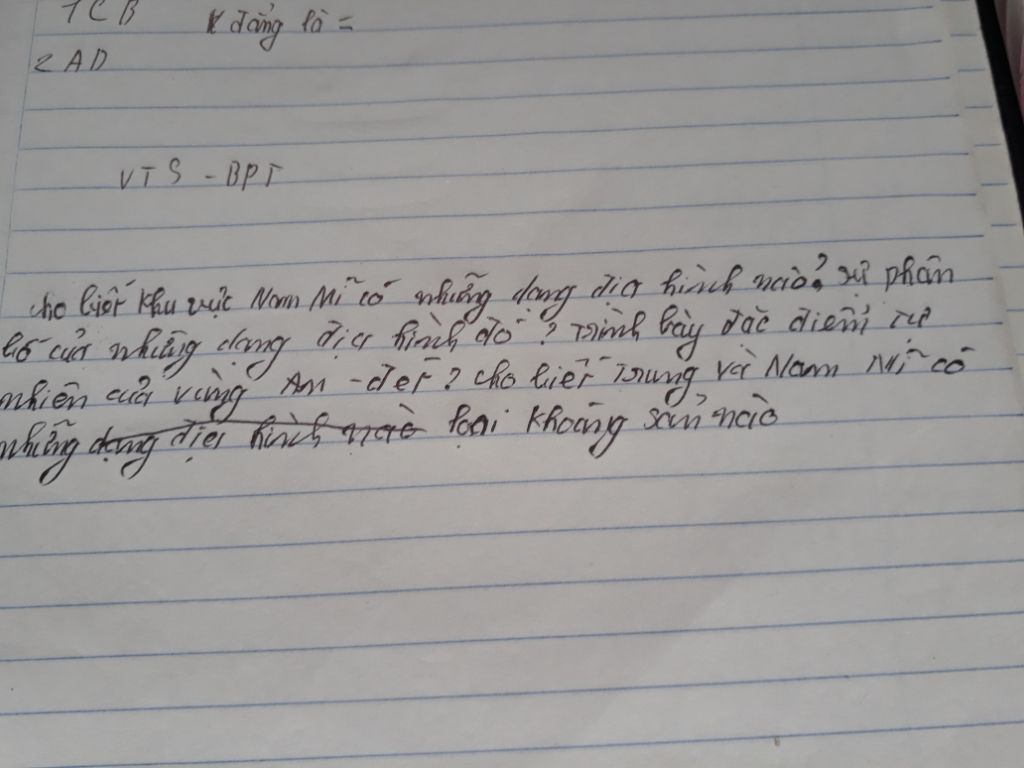 1 C B K đẳng là =
2 A D
VTS - BPT
cho biết khu vực Nam Mĩ có những dạng địa hình nào? sự phân
bố của những dạng địa hình đó? Trình bày đặc điểm tự
nhiên của vùng An-đét? cho biết Trung và Nam Mĩ có
những dạng địa hình nào loại khoáng sản nào